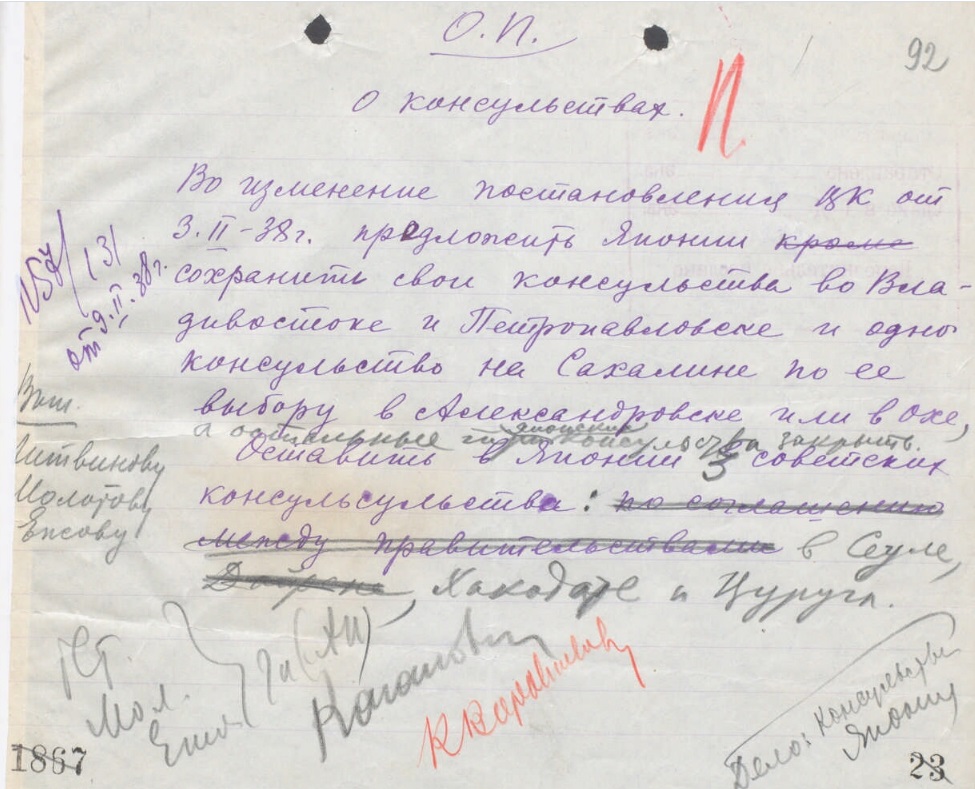 О.П.
92
О консульствах.
П
Во изменение постановления ЦК от
3.II-38г. предложить Японии кроме
сохранить свои консульства во Вла-
дивостоке и Петропавловске и одно
консульство на Сахалине по ее
выбору в Александровске или в Охе,
а остальные японские консульства закрыть.
Оставить в Японии 3 советских
консульсульства: по соглашению
между правительствами в Сеуле,
Дайрене, Хакодате и Цуруга.
131
от 9.II.38г.
Вып.
Литвинову
Молотову
Ежову
Ст.
Мол.
Каганович
К Ворошилов
Дело: Консульства
Японии
1867
23